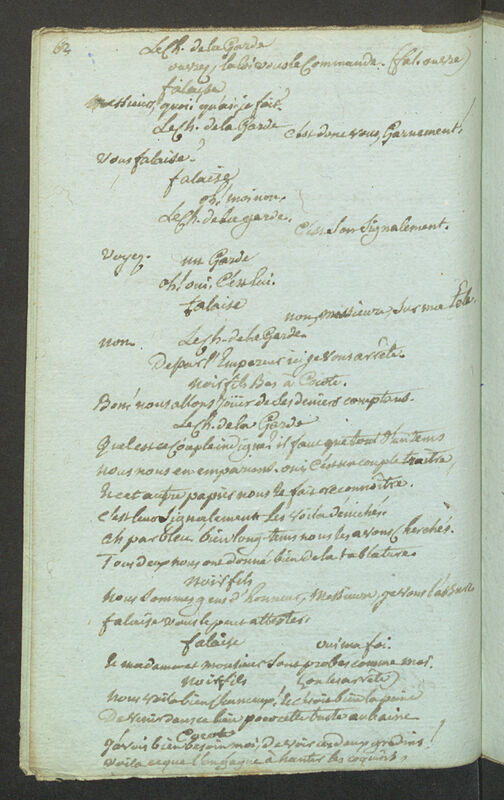 62
Le Ch. de la Garde
ouvrez, la loi vous le Commande. (fal. ouvre)
falaise
Messieurs, quoi qu'ai-je fait?
Le Ch. de la Garde
c'est donc vous, Garnement!
Vous falaise?
falaise
oh! moi non.
Le Ch. de la garde.
C'est son signalement.
Voyez.
un Garde
oh! oui, C'est lui.
falaise
non, Messieurs, sur ma Tête
non.
Le Ch. de la Garde.
De par l'Empereur ici je vous arrête.
Noirfils bas à Cocote.
Bon! nous allons jouir de ses deniers comptans.
Le Ch. de la Garde
Quel est ce Couple indigne? il faut que tout d'un tems
nous nous en emparions. oui, c'est un couple traître,
Et cet autre papier nous le fait reconnoître.
C'est leur signalement. Les voila denichés.
Eh parbleu bien long-tems nous les avons Cherchés.
Tous deux nous ont donné bien de la tablature.
Noirfils
Nous Sommes gens d'honneur, Messieurs, je vous l'assure
falaise vous le peut attester.
falaise
oui ma foi.
de madame et monsieur sont probes comme moi.
Noirfils
(on les arrête)
Nous voila bien
De venir dans ce lieu pour cette aubaine
Cocote
J'avois bien besoin moi, de voir ces deux gredins!
Voila ce que l'on gagne à hanter les coquins.